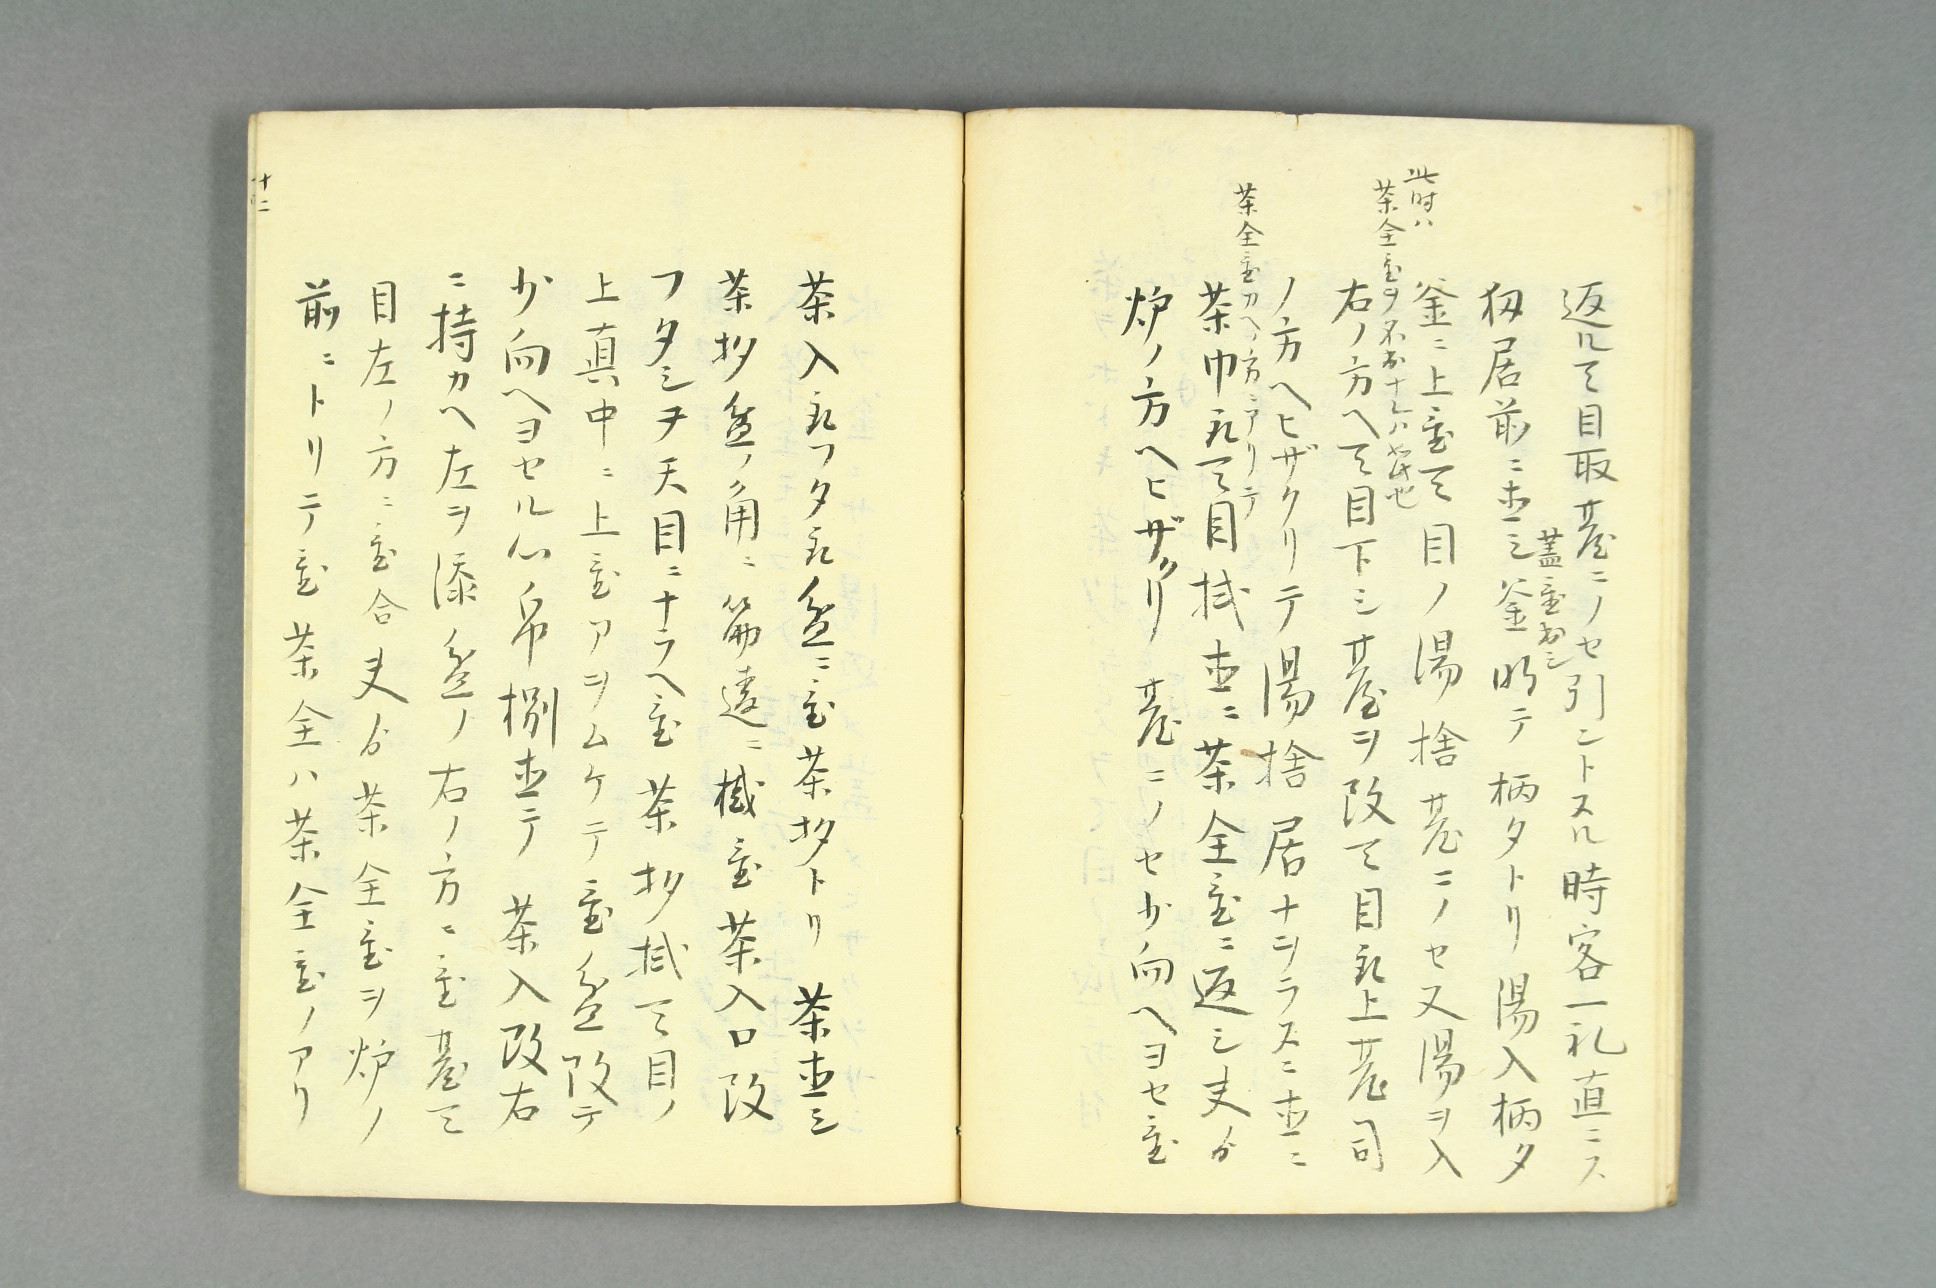 返ルテ目取臺ニノセ引ントスル時客一礼直ニス
蓋置お
扨居前ニ直シ釜明テ柄タトリ湯入柄タ
釜ニ上置テ目ノ湯捨臺ニノセ又湯ヲ入
此时ハ
茶全置ヲ
右ノ方ヘテ目下シ臺ヲ改テ目取上臺司
ノ方ヘヒザクリテ湯捨居ナヲラスニ直ニ
茶全置カヘノ方ニアリテ
茶巾取テ目拭直ニ茶全置ニ返シ夫ゟ
炉ノ方ヘヒザクリ臺ニノセ少向ヘヨセ置
茶入取フタ取盆ニ置茶杓トリ茶直シ
茶杓盆ノ角ニ筋違ニ置茶入口改
フタシヲ天目ニナラヘ置茶杓拭テ目ノ
上真中ニ上置アヲムケテ置盆改テ
少向ヘヨセル心帛捌直テ茶入改右
ニ持カヘ左ヲ添盆ノ右ノ方ニ置臺テ
目左ノ方ニ置合夫ゟ茶全置ヲ炉ノ
前ニトリテ置茶全ハ茶全置ノアリ
十二